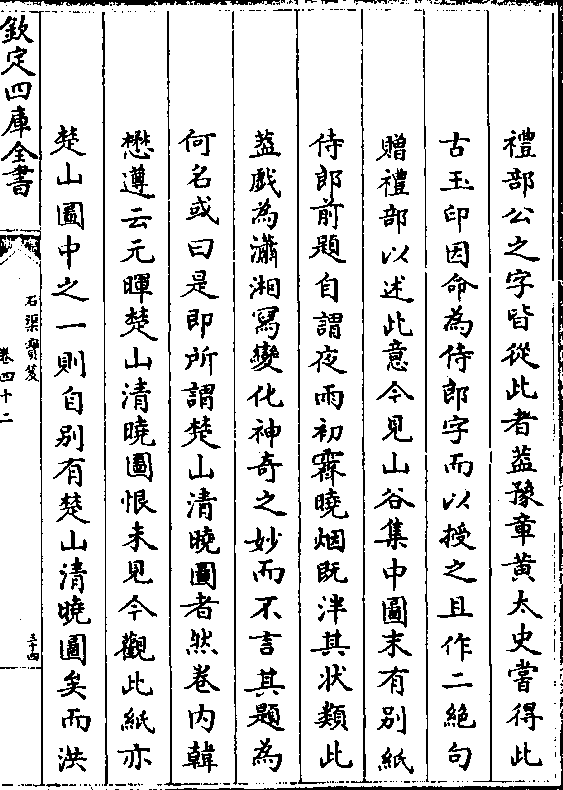 禮部公之字皆從此者葢豫章黃太史嘗得此
古玉印因命為侍郎字而以授之且作二絶句
贈禮部以述此意今見山谷集中圖末有别紙
侍郎前題自謂夜雨初霽曉烟既泮其狀類此
葢戲為瀟湘寫變化神奇之妙而不言其題為
何名或曰是即所謂楚山清曉圖者然卷内韓
懋遵云元暉楚山清曉圖恨未見今觀此紙亦
楚山圖中之一則自别有楚山清曉圖矣而洪
欽定四庫全書
石渠寶笈
卷四十二
三十四